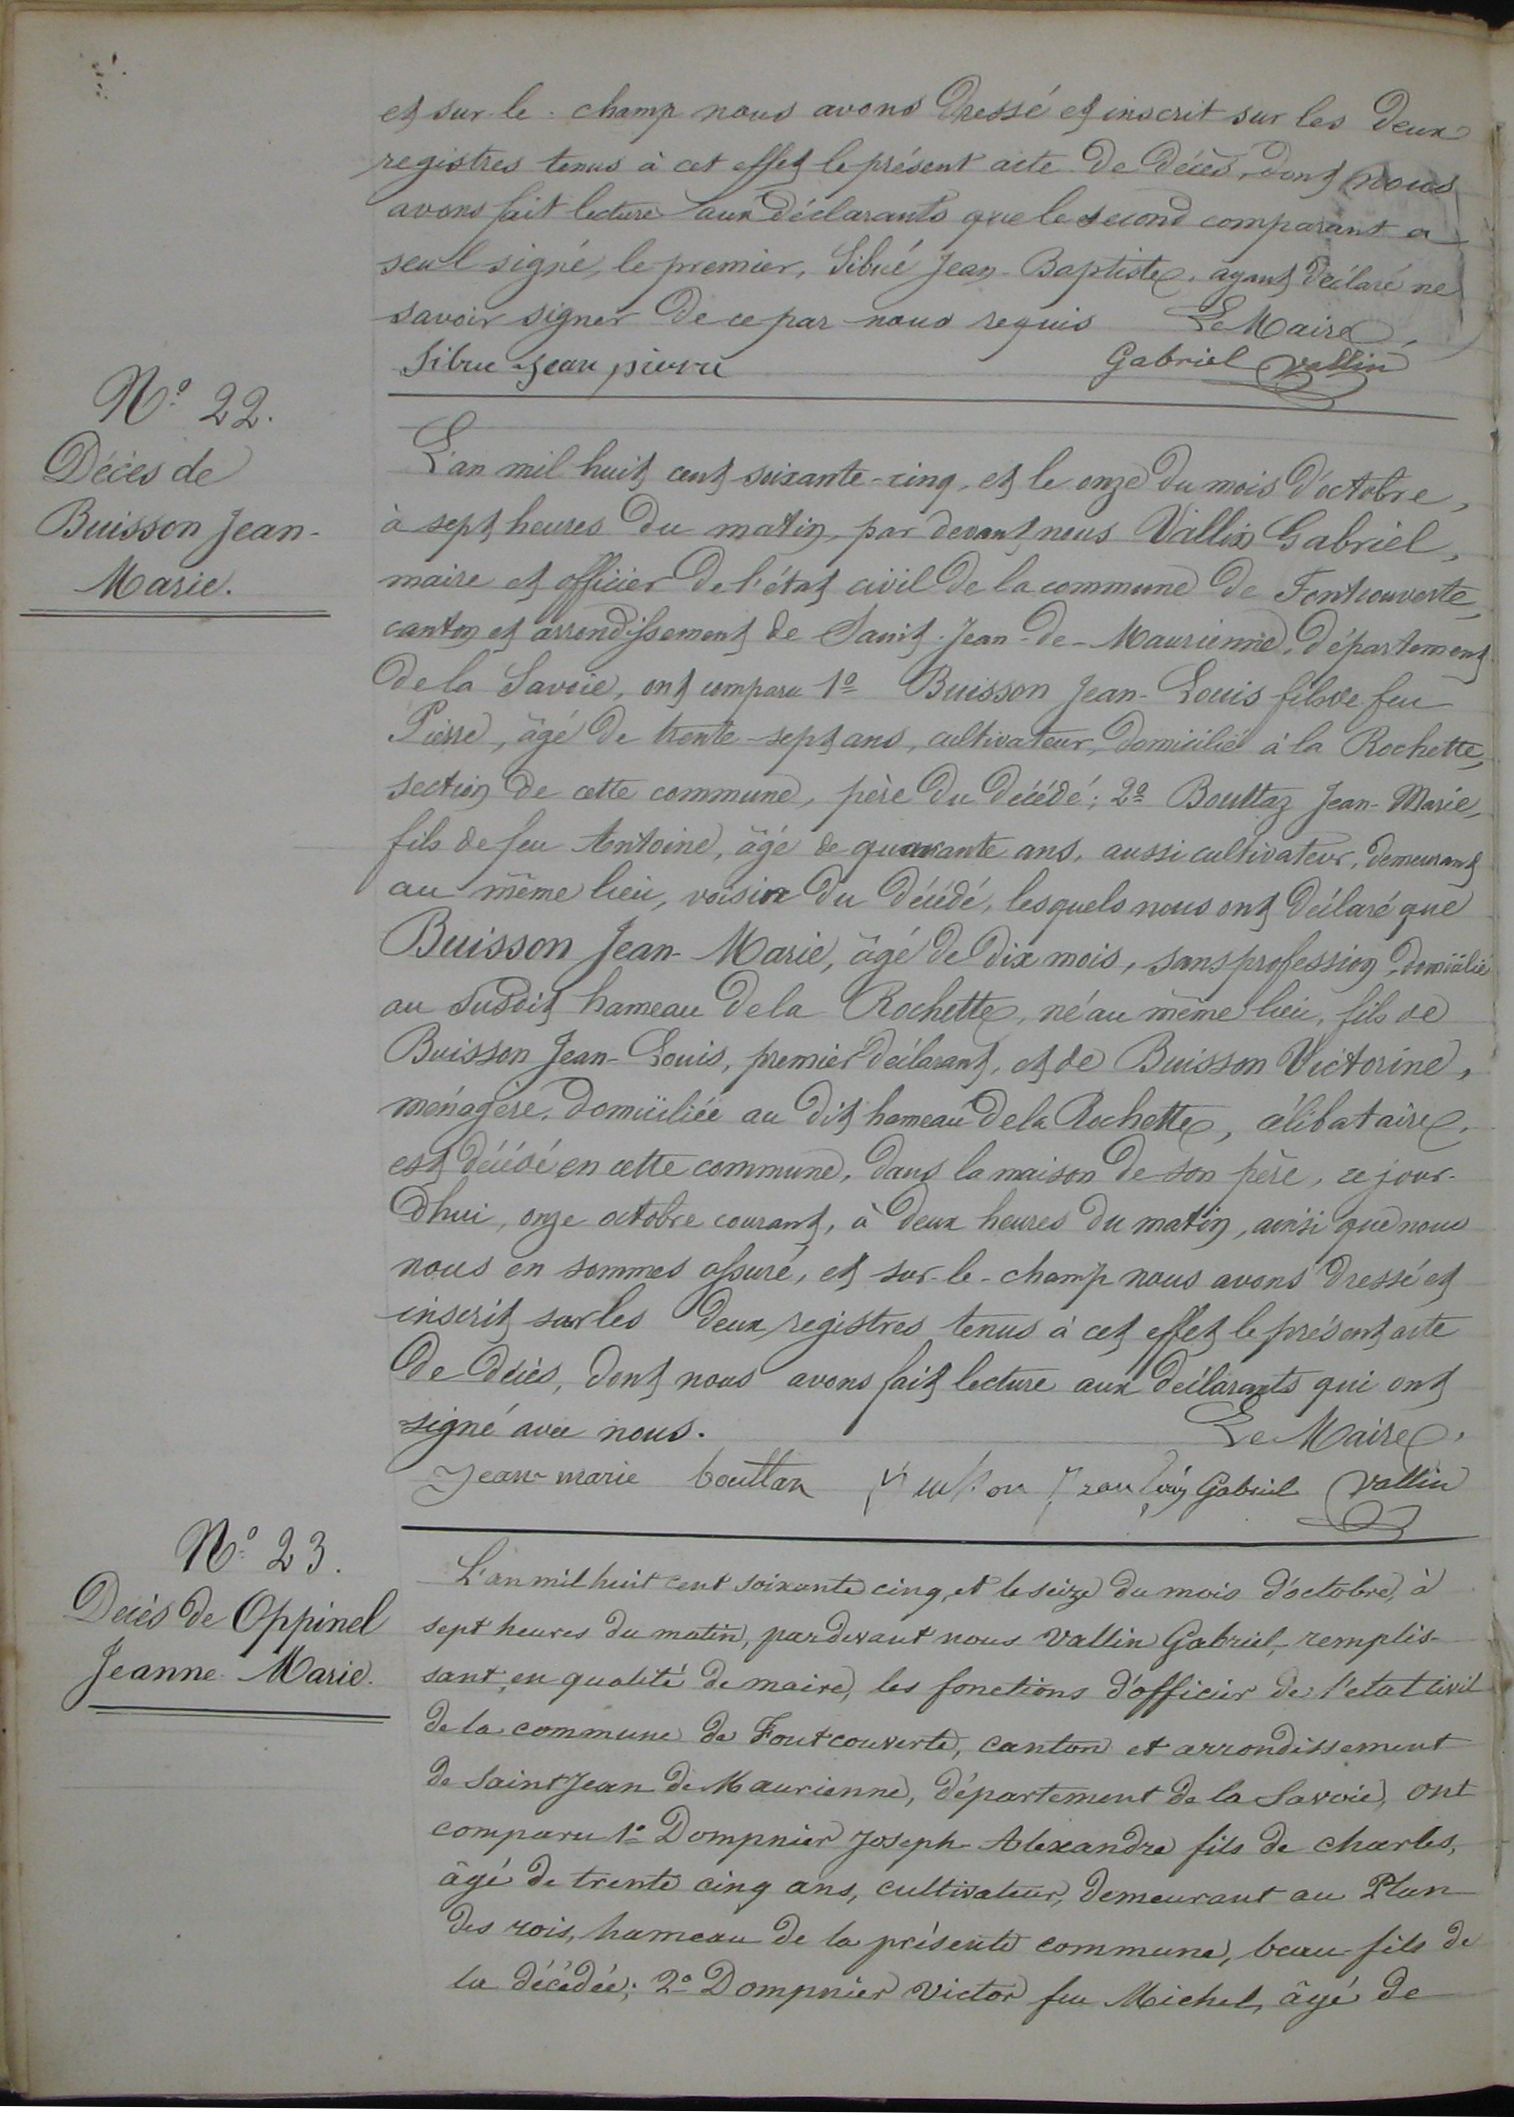 et sur-le-champ nous avons dressé et inscrit sur les deux
registres tenus à cet effet le présent acte de décès, dont nous
avons fait lecture aux déclarants que le second comparant a
seul signé, le premier, Sibué Jean-Baptiste, ayant déclaré ne
savoir signer de ce par nous requis Le Maire,
Sibue Jean pierre Gabriel Vallin
N° 22.
Décès de
Buisson Jean-
Marie.
L'an mil huit cent soixante-cinq, et le onze du mois d'octobre,
à sept heures du matin, par devant nous Vallin Gabriel,
maire et officier de l'état civil de la commune de Fontcouverte,
canton et arrondissement de Saint-Jean-de-Maurienne, département
de la Savoie, ont comparu 1° Buisson Jean-Louis fils de feu
Pierre, âgé de trente-sept ans, cultivateur, domicilié à la Rochette,
section de cette commune, père du décédé; 2° Bouttaz Jean-Marie,
fils de feu Antoine, âgé de quarante ans, aussi cultivateur, demeurant
au même lieu, voisin du décédé, lesquels nous ont déclaré que
Buisson Jean-Marie, âgé de dix mois, sans profession, domicilié
au susdit hameau de la Rochette, né au même lieu, fils de
Buisson Jean-Louis, premier déclarant, et de Buisson Victorine,
ménagère, domiciliée au dit hameau de la Rochette, célibataire,
est décédé en cette commune, dans la maison de son père, ce jour-
d'hui, onze octobre courant, à deux heures du matin, ainsi que nous
nous en sommes assuré, et sur-le-champ nous avons dressé et
inscrit sur les deux registres tenus à cet effet le présent acte
de décès, dont nous avons fait lecture aux déclarants qui ont
signé avec nous. Le Maire,
Jean-marie bouttaz Gabriel Vallin
N° 23.
Décès de Oppinel
Jeanne Marie.
L'an mil huit cent soixante cinq, et le seize du mois d'octobre, à
sept heures du matin, pardevant nous Vallin Gabriel, remplis-
sant en qualité de maire, les fonctions d'officier de l'etat civil
de la commune de Fontcouverte, canton et arrondissement
de Saint Jean de Maurienne, département de la Savoie, ont
comparu 1° Dompnier Joseph-Alexandre fils de charles,
âgé de trente cinq ans, cultivateur, demeurant au Plan
des rois, hameau de la présente commune, beau-fils de
la décédée; 2° Dompnier Victor feu Michel, âgé de